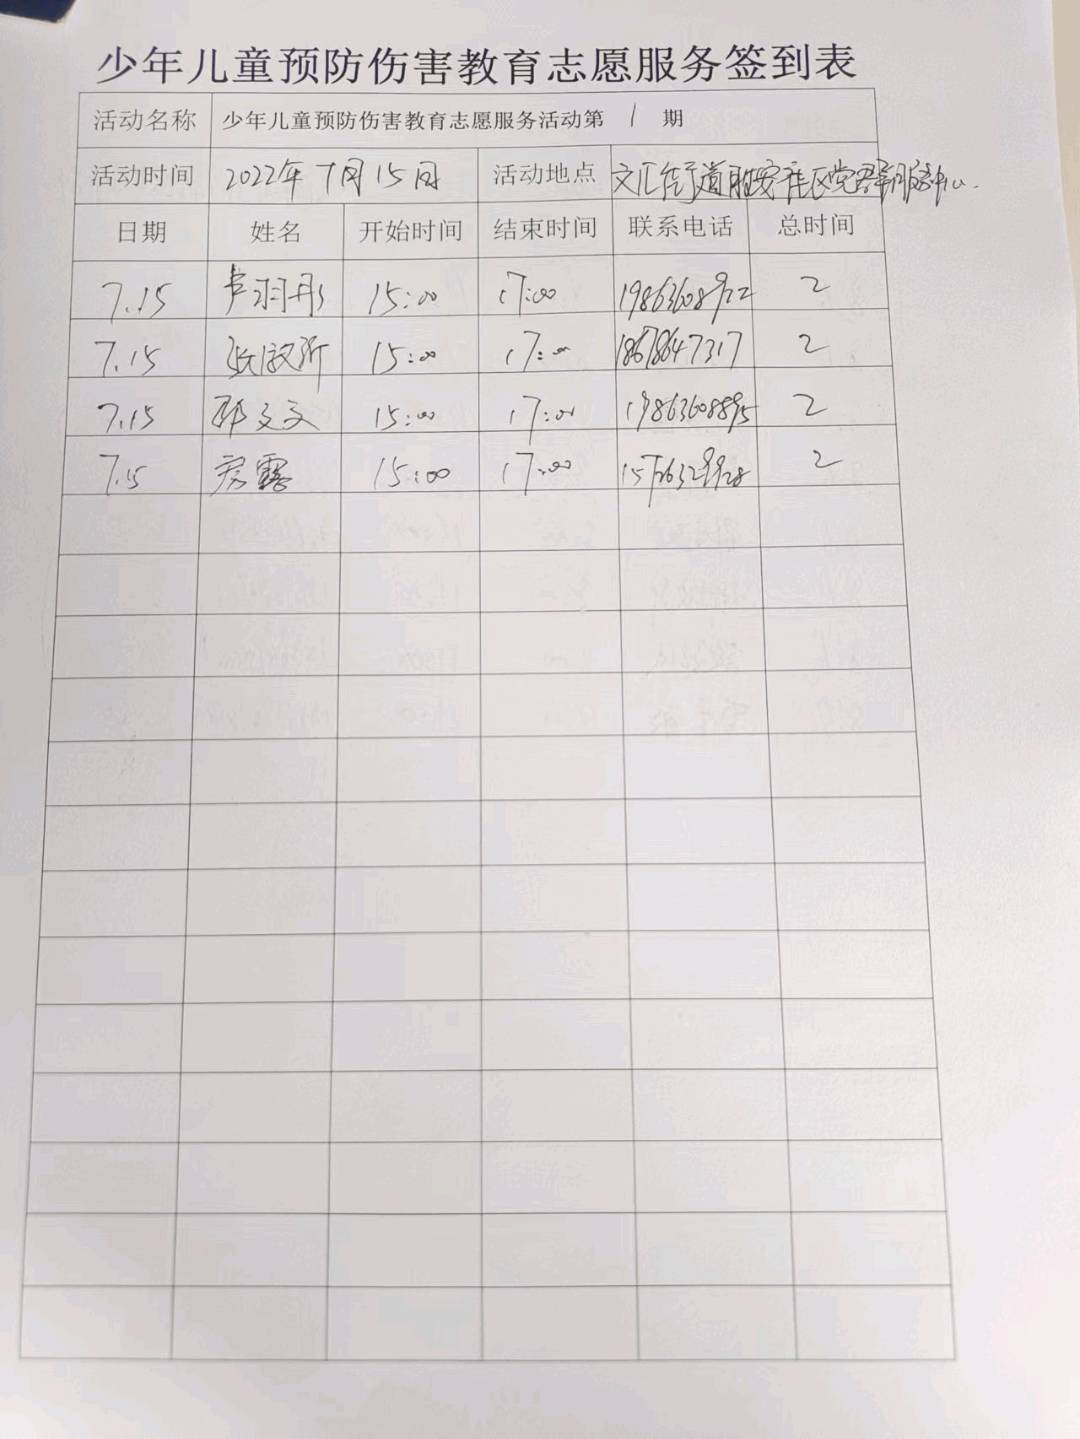 少年儿童预防伤害教育志愿服务签到表
活动名称 少年儿童预防伤害教育志愿服务活动第 1 期
活动时间 2022年7月15日 活动地点 文汇街道胜安社区党群服务中心.
日期 姓名 开始时间 结束时间 联系电话 总时间
7.15 卢羽彤 15:00 17:00 19863608922 2
7.15 15:00 17:00 18678647317 2
7.15 邵文文 15:00 17:00 19863608895 2
7.15 房露 15:00 17:00 2